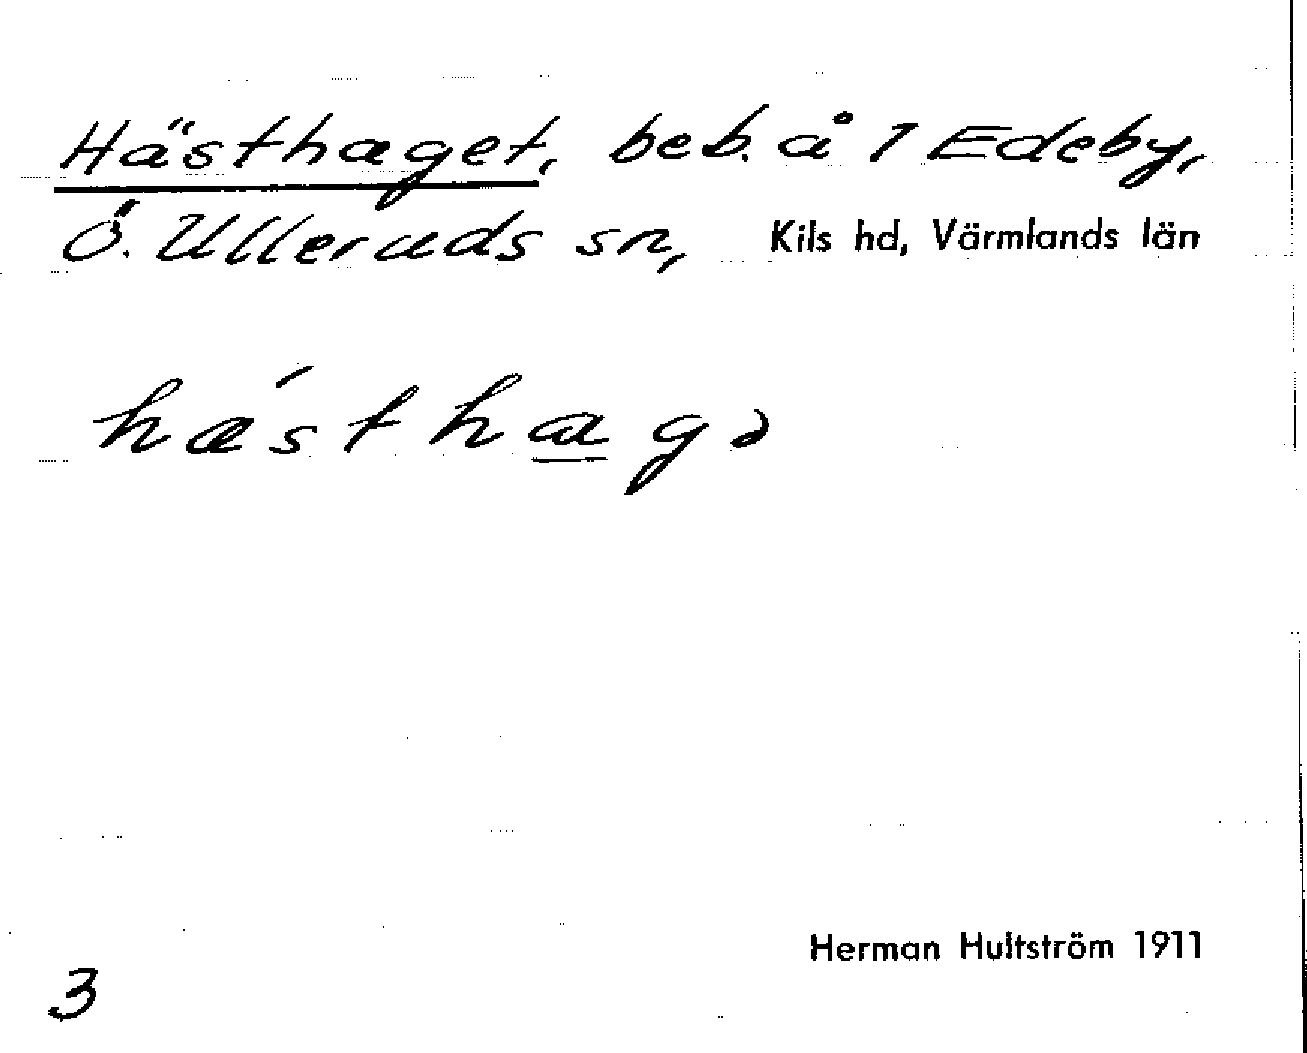 Hästhaget, beb. å 1 Edeby,
Ö. Ulleruds sn, Kils hd, Värmlands län
hǽsthagə
Herman Hultström 1911
3